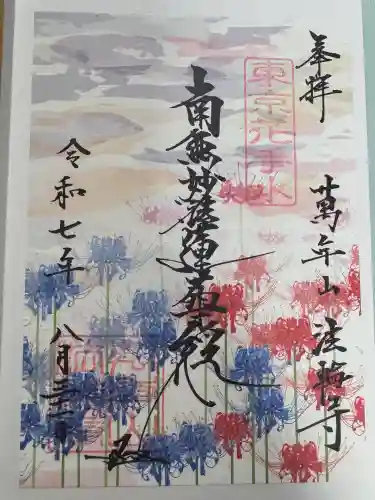 奉拝
萬年山 法輪寺
東京花手水
南無妙法蓮華経
令和七年 八月三十一日